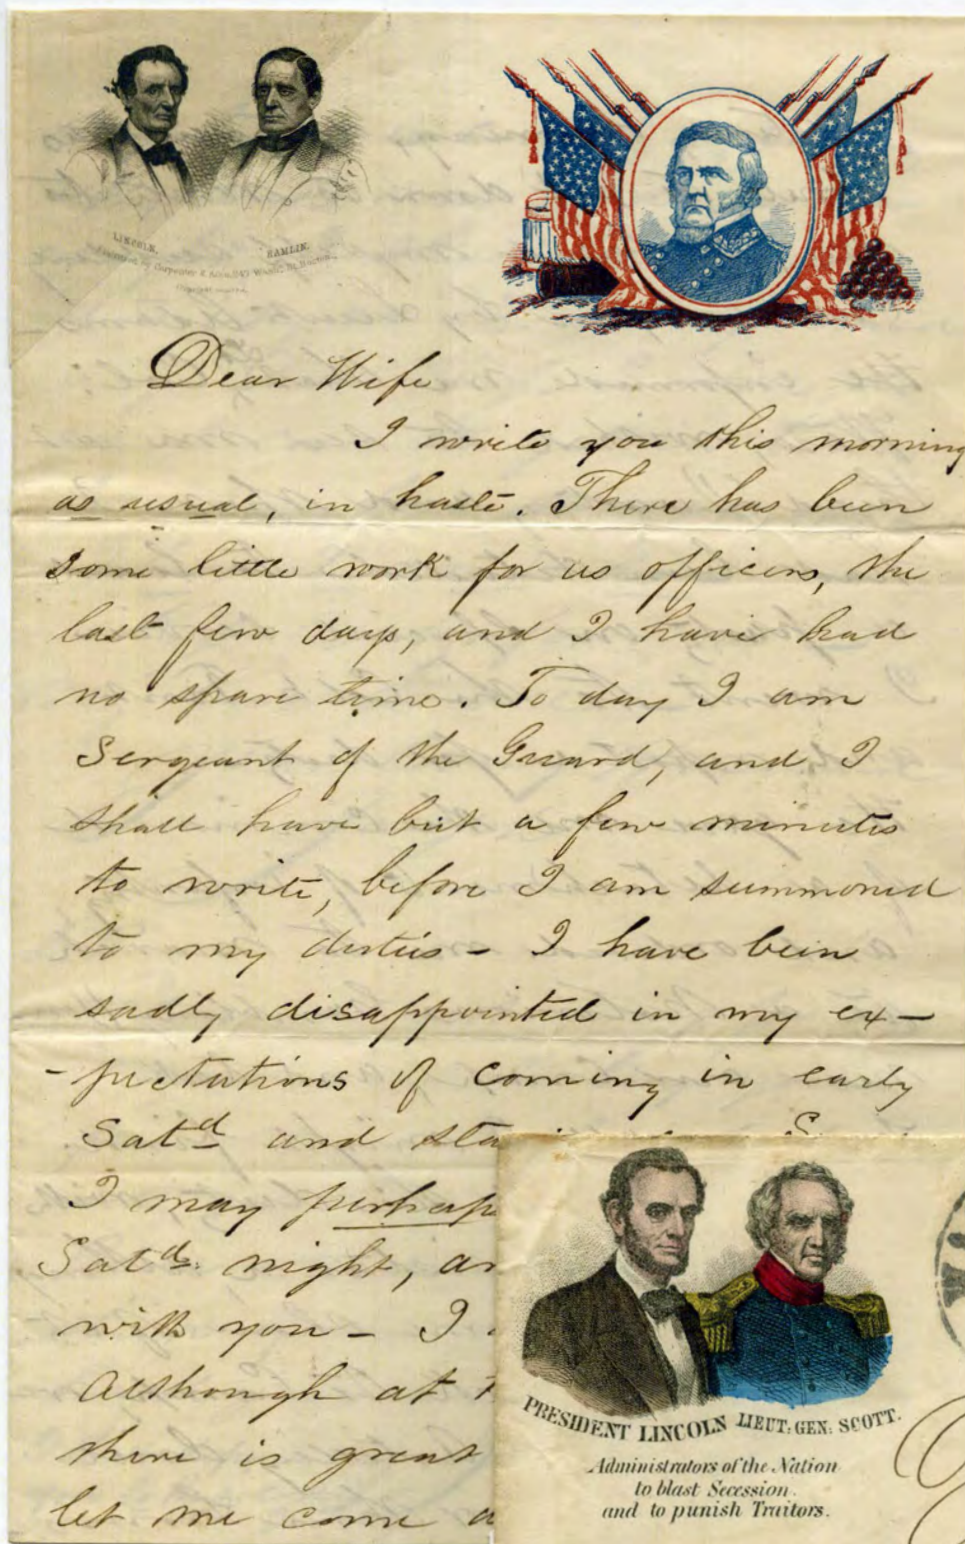 LINCOLN. HAMLIN.
Dear Wife
I write you this morning
as usual, in haste. There has been
some little work for us officers, the
last few days, and I have had
no spare time. To day I am
Sergeant of the Guard, and I
shall have but a few minutes
to write, before I am summoned
to my duties - I have been
sadly disappointed in my ex-
-pectations of coming in early
Satd and
I may perhaps
Satd. night,
with you - I
Although at
there is great
let me come
PRESIDENT LINCOLN LIEUT: GEN: SCOTT.
Administrators of the Nation
to blast Secession.
and to punish Traitors.